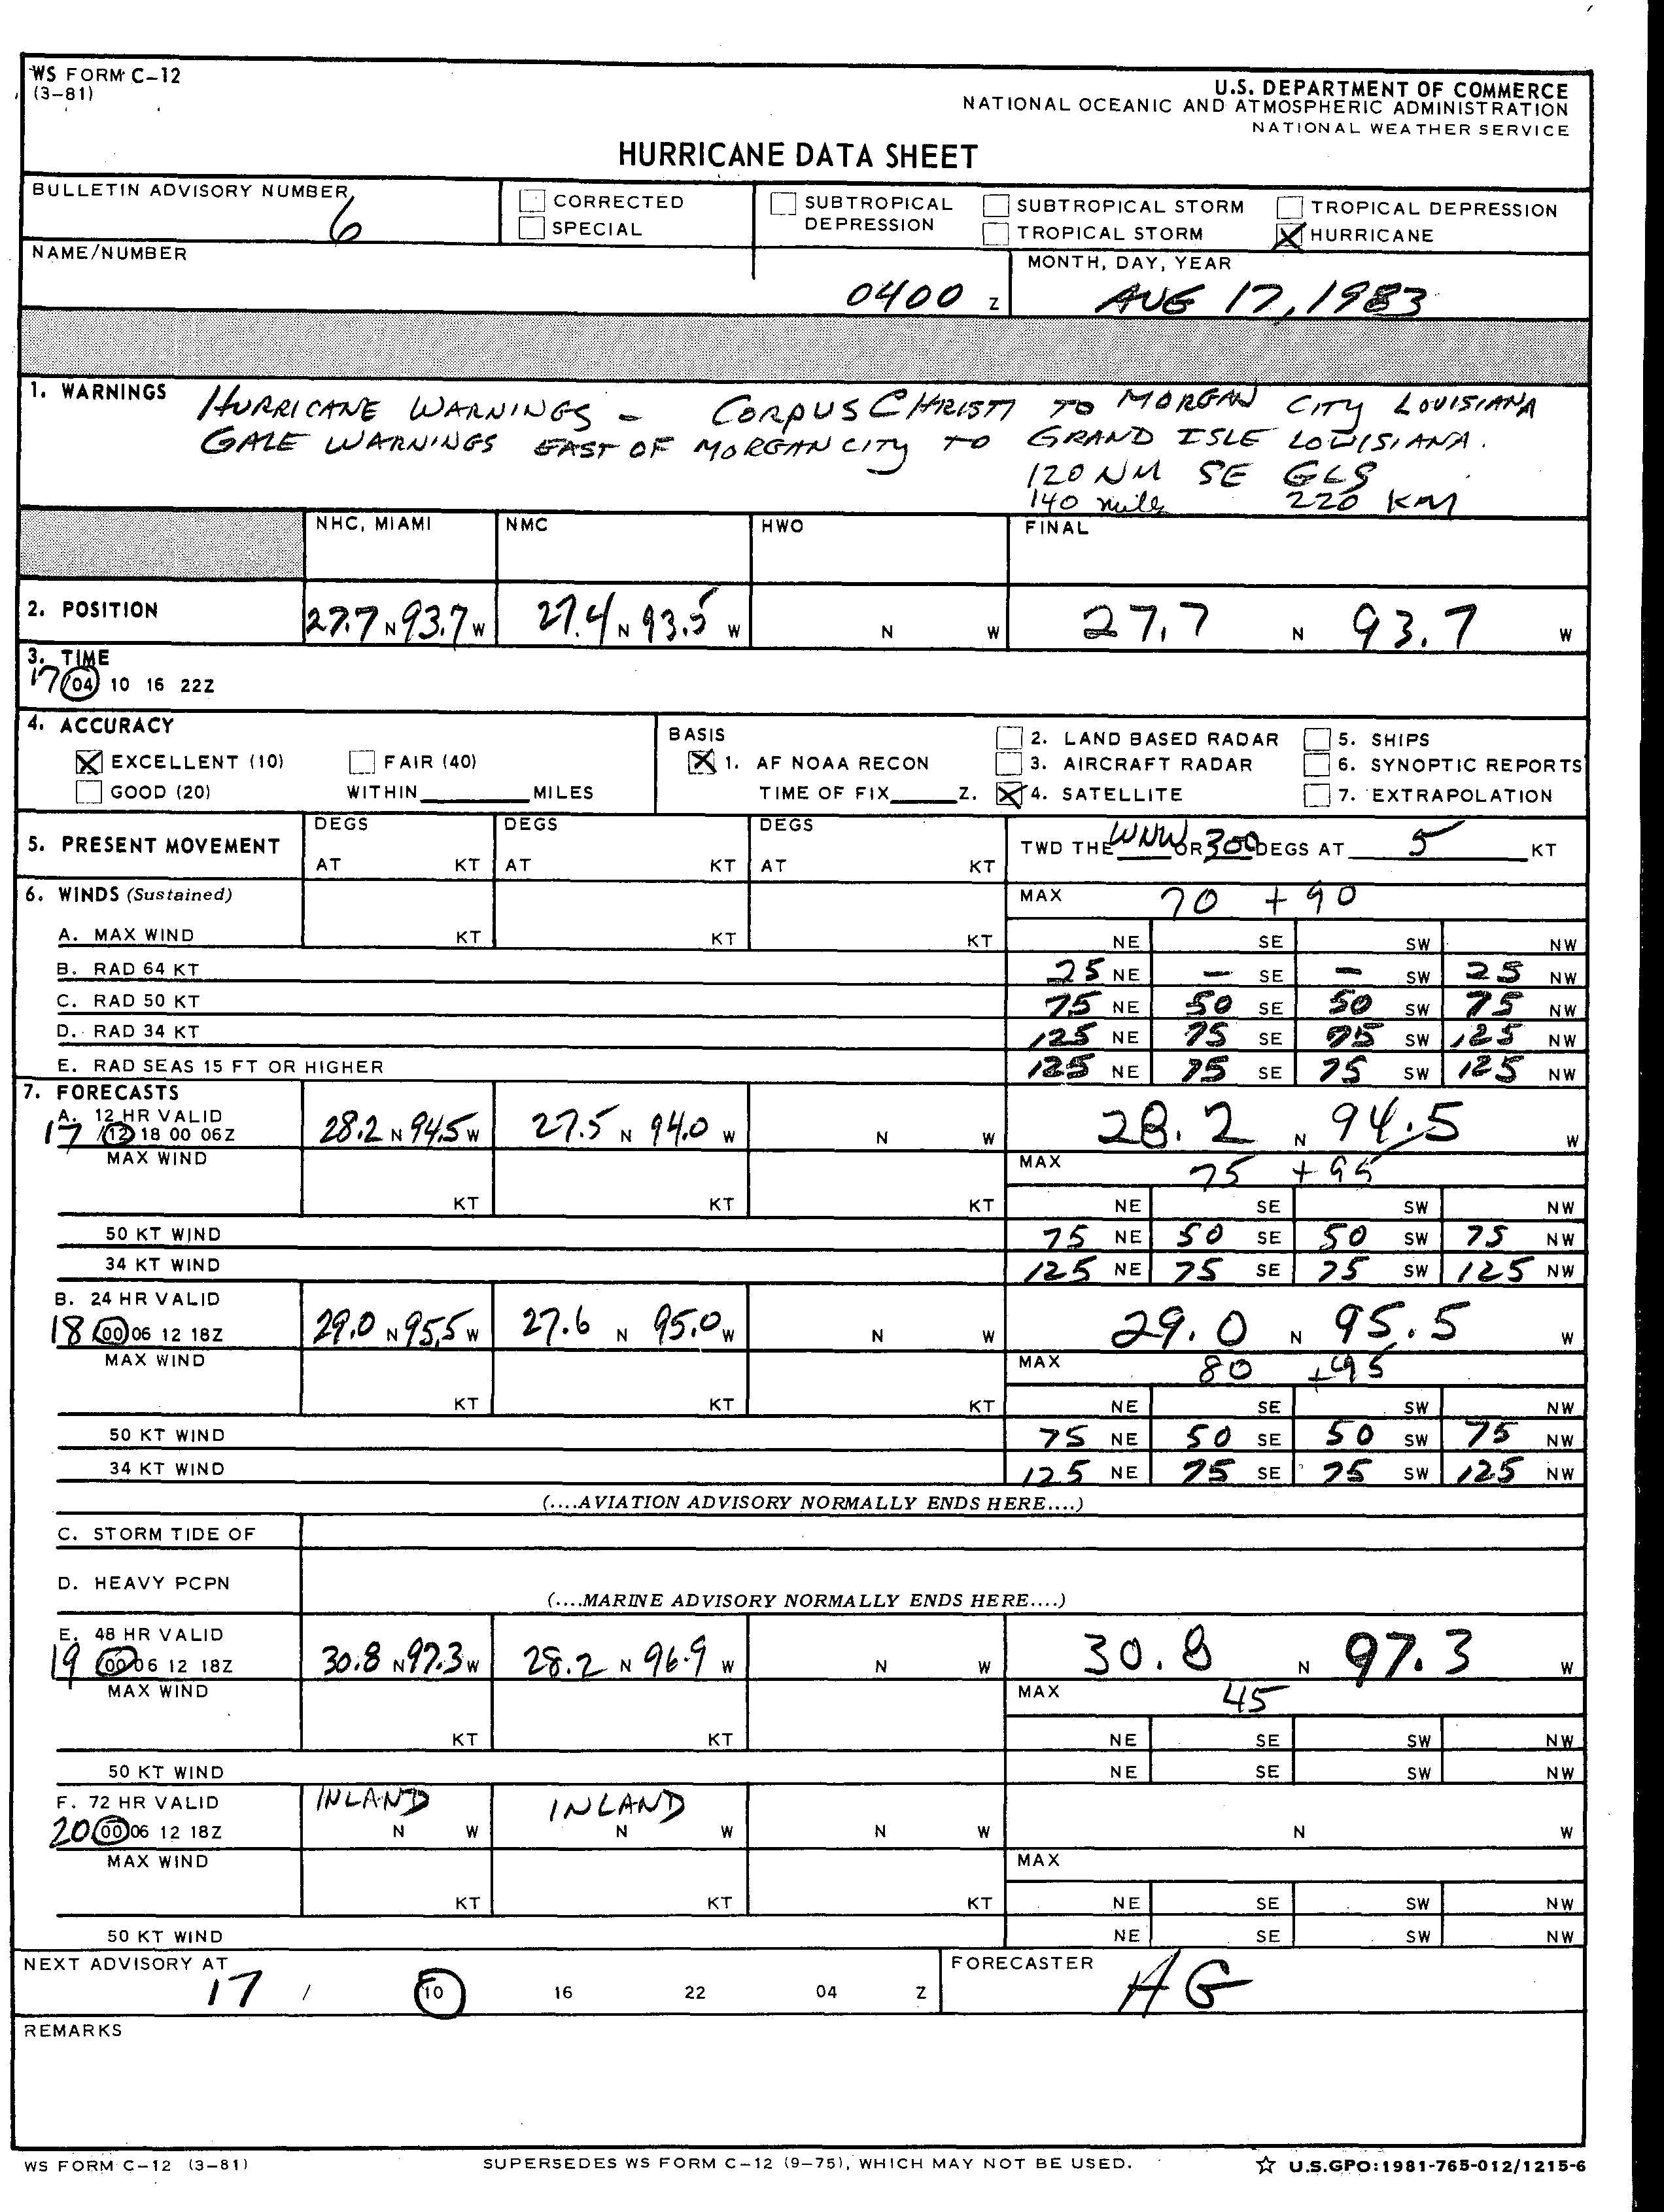 WS FORM C-12
(3-81)
U.S. DEPARTMENT OF COMMERCE
NATIONAL OCEANIC AND ATMOSPHERIC ADMINISTRATION
NATIONAL WEATHER SERVICE
HURRICANE DATA SHEET
BULLETIN ADVISORY NUMBER
6
CORRECTED
SPECIAL
SUBTROPICAL DEPRESSION
SUBTROPICAL STORM
TROPICAL STORM
TROPICAL DEPRESSION
HURRICANE
NAME/NUMBER
0400 Z
MONTH, DAY, YEAR
AUG 17, 1983
1. WARNINGS
HURRICANE WARNINGS - CORPUS CHRISTI TO MORGAN CITY LOUISIANA
GALE WARNINGS EAST OF MORGAN CITY TO GRAND ISLE LOUISIANA.
120 NM SE GLS
140 miles 220 KM
NHC, MIAMI NMC HWO FINAL
2. POSITION 27.7 N 93.7 W 27.4 N 93.5 W N W 27.7 N 93.7 W
3. TIME
17 04 10 16 22Z
4. ACCURACY
EXCELLENT (10) FAIR (40)
GOOD (20) WITHIN MILES
BASIS
1. AF NOAA RECON
TIME OF FIX Z.
2. LAND BASED RADAR
3. AIRCRAFT RADAR
4. SATELLITE
5. SHIPS
6. SYNOPTIC REPORTS
7. EXTRAPOLATION
5. PRESENT MOVEMENT
DEGS DEGS DEGS
AT KT AT KT AT KT
TWD THE WNW OR 300 DEGS AT 5 KT
6. WINDS (Sustained)
MAX 70 + 90
A. MAX WIND KT KT KT NE SE SW NW
B. RAD 64 KT 25 NE – SE – SW 25 NW
C. RAD 50 KT 75 NE 50 SE 50 SW 75 NW
D. RAD 34 KT 125 NE 75 SE 75 SW 125 NW
E. RAD SEAS 15 FT OR HIGHER 125 NE 75 SE 75 SW 125 NW
7. FORECASTS
A. 12 HR VALID
17 /12 18 00 06Z 28.2 N 94.5 W 27.5 N 94.0 W N W 28.2 N 94.5 W
MAX WIND MAX 75 + 95
KT KT KT NE SE SW NW
50 KT WIND 75 NE 50 SE 50 SW 75 NW
34 KT WIND 125 NE 75 SE 75 SW 125 NW
B. 24 HR VALID
18 00 06 12 18Z 29.0 N 95.5 W 27.6 N 95.0 W N W 29.0 N 95.5 W
MAX WIND MAX 80 +95
KT KT KT NE SE SW NW
50 KT WIND 75 NE 50 SE 50 SW 75 NW
34 KT WIND 125 NE 75 SE 75 SW 125 NW
(....AVIATION ADVISORY NORMALLY ENDS HERE....)
C. STORM TIDE OF
D. HEAVY PCPN
(....MARINE ADVISORY NORMALLY ENDS HERE....)
E. 48 HR VALID
19 00 06 12 18Z 30.8 N 97.3 W 28.2 N 96.9 W N W 30.8 N 97.3 W
MAX WIND MAX 45
KT KT NE SE SW NW
50 KT WIND NE SE SW NW
F. 72 HR VALID INLAND INLAND
20 00 06 12 18Z N W N W N W N W
MAX WIND MAX
KT KT KT NE SE SW NW
50 KT WIND NE SE SW NW
NEXT ADVISORY AT
17 / 10 16 22 04 Z
FORECASTER
AG
REMARKS
WS FORM C-12 (3-81)
SUPERSEDES WS FORM C-12 (9-75), WHICH MAY NOT BE USED.
☆ U.S.GPO:1981-765-012/1215-6